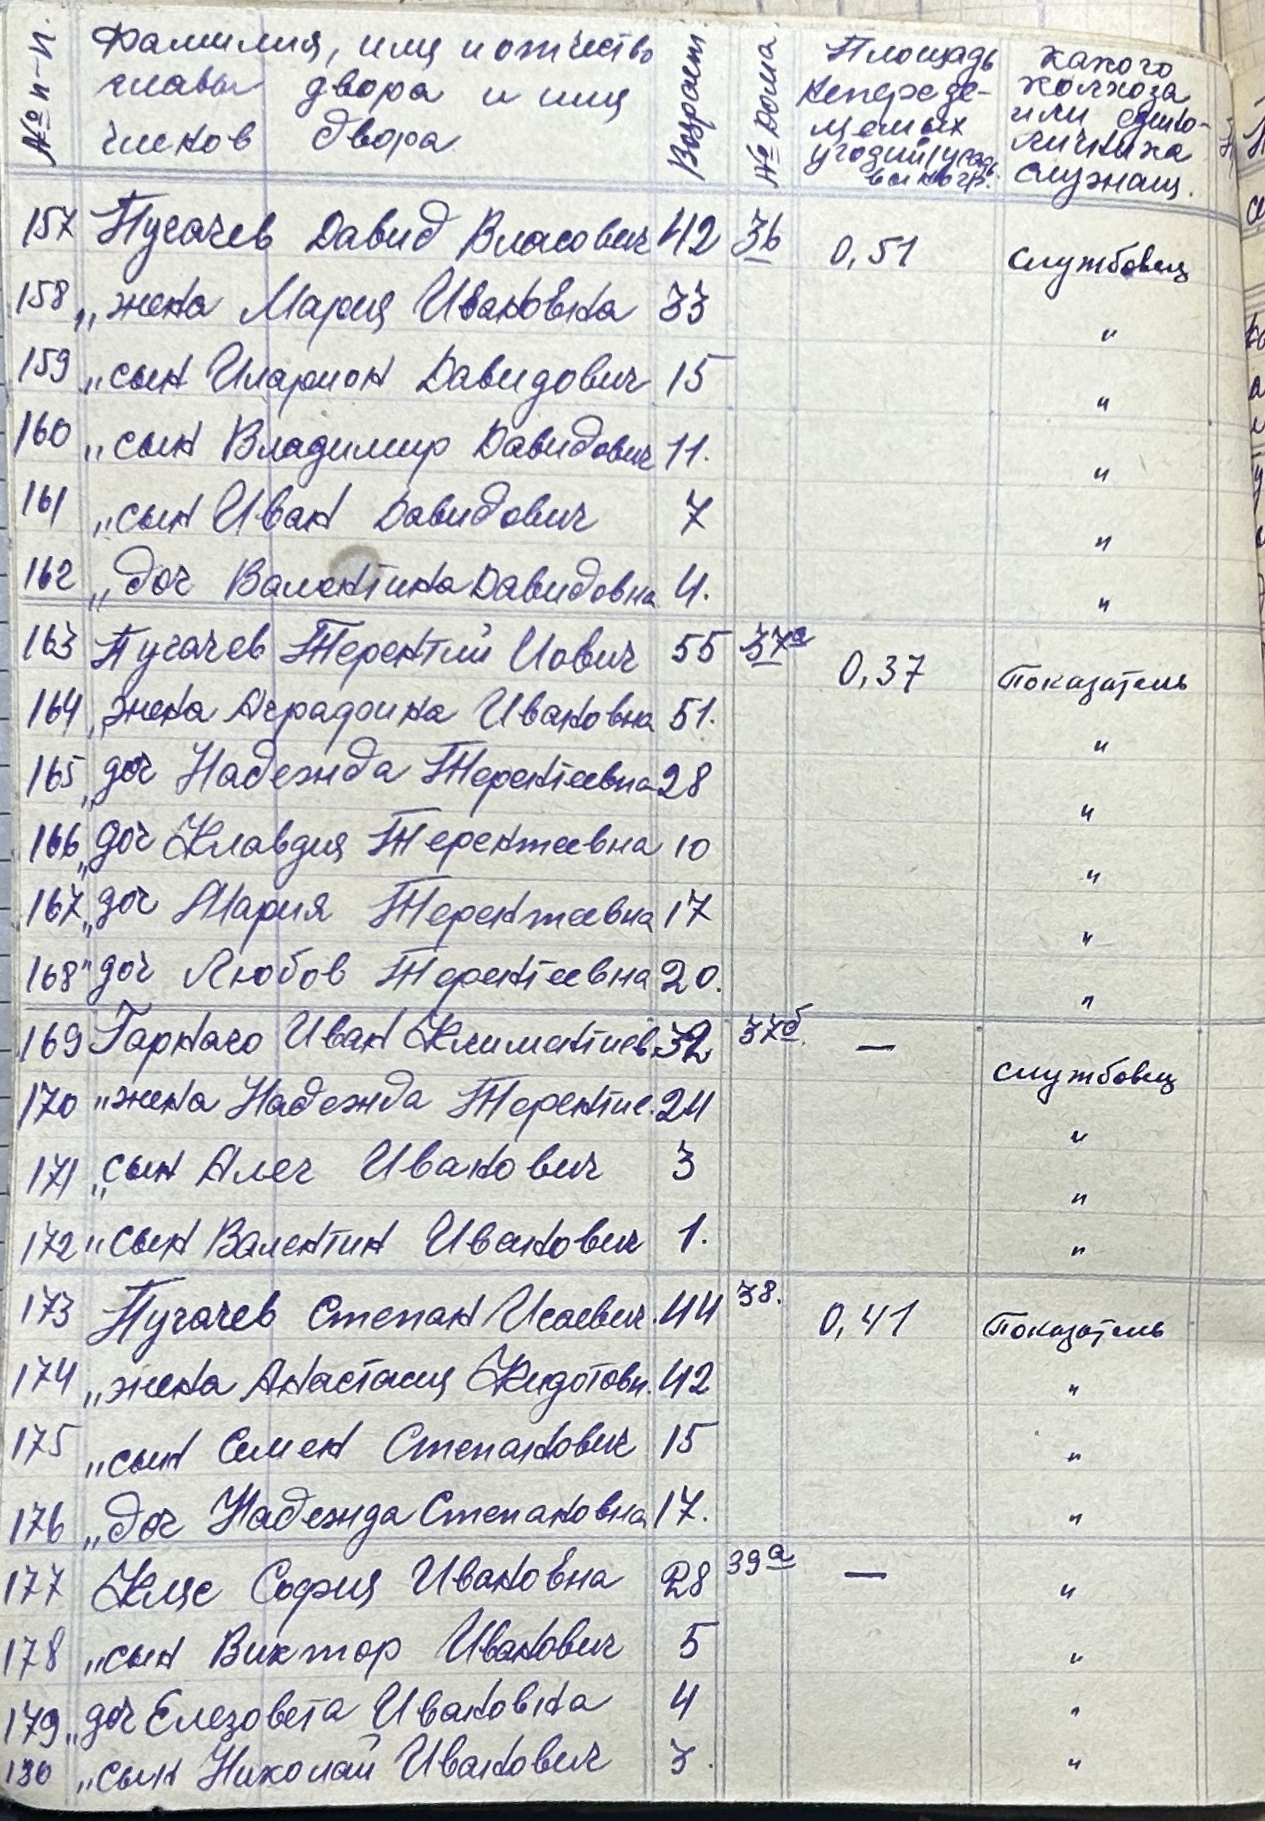 № п-п. Фамилия, имя и отчество главы двора и имя членов двора Возраст № Дома Площадь непереде- угодий какого колхоза или едино- личника служащ.
157 Пугачев Давид Власович 42 36 0,51 службовец
158 „ жена Мария Ивановна 33 "
159 „ сын Иларион Давидович 15 "
160 „ сын Владимир Давидович 11. "
161 „ сын Иван Давидович 7 "
162 „ доч Валентина Давидовна 4. "
163 Пугачев Терентий Иович 55 37а 0,37 Показатель
164 „ жена Ивановна 51. "
165 „ доч Надежда Терентеевна 28 "
166 „ доч Клавдия Терентеевна 10 "
167 „ доч Мария Терентеевна 17 "
168 " доч Любов Терентеевна 20. "
169 Гарначо Иван Климентиев. 32 37б. — службовец
170 „ жена Надежда Терентие. 24 "
171 „ сын Алег Иванович 3 "
172 „ сын Валентин Иванович 1. "
173 Пугачев Степан Исаевич. 44 38. 0,41 Показатель
174 „ жена Анастасия 42 "
175 „ сын Семен Степанович 15 "
176 „ доч Надежда Степановна 17. "
177 София Ивановна 28 39а — "
178 „ сын Виктор Иванович 5 "
179 „ доч Елезовета Ивановна 4 "
180 „ сын Николай Иванович 3. "